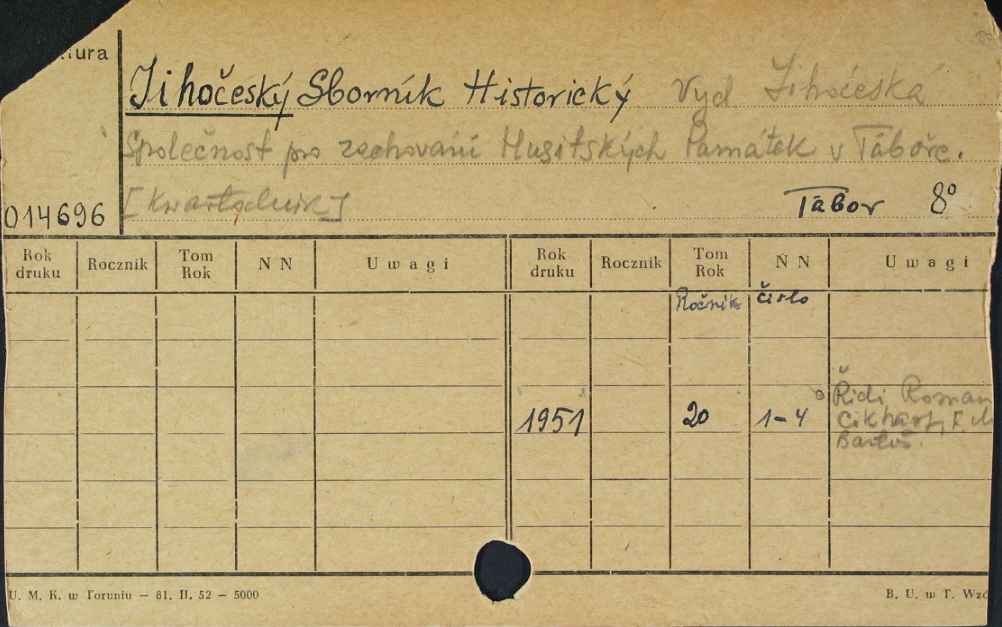 Jihočeský Sborník Historický Vyd Jihočeská
Společnost pro zachování Husitských Památek v Táboře.
[Kwartalnik]
014696
Tábor 8°
Rok druku Rocznik Tom Rok N N Uwagi Rok druku Rocznik Tom Rok N N Uwagi
Ročník Číslo
Řídí Roman
1951 20 1-4 Cikhart, F. M.
Bartoš.
U. M. K. w Toruniu — 81. II. 52 — 5000
B. U. w T.